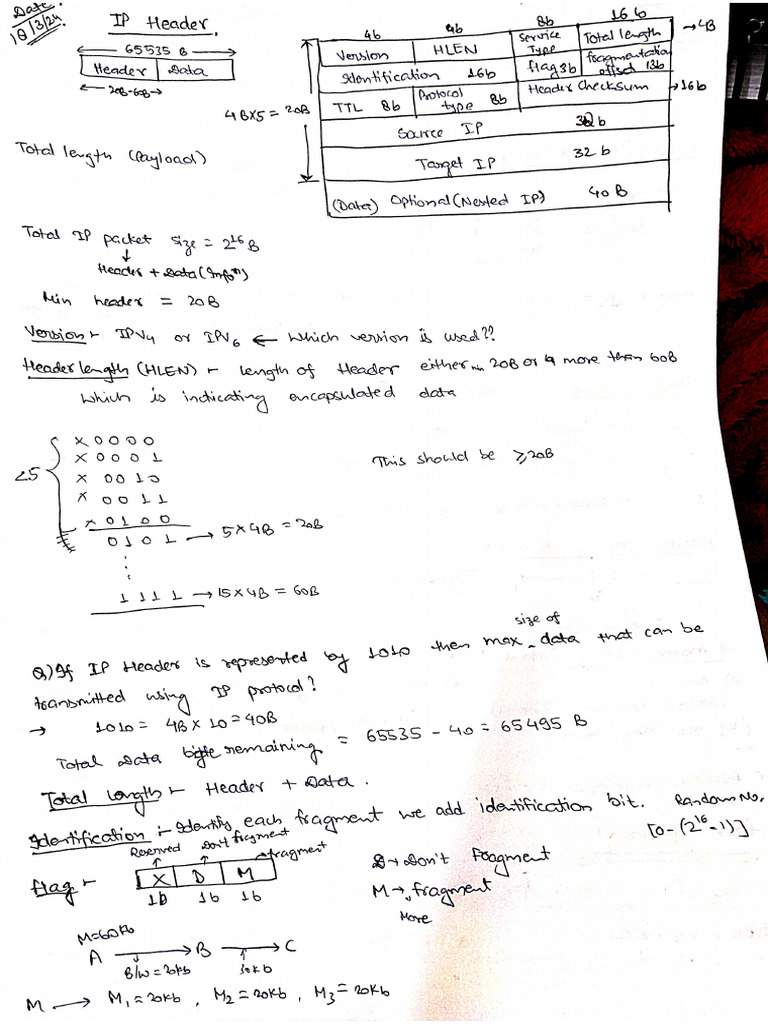 Date:
18/3/24
IP Header.
65535 B
Header Data
20B-60B
4b 4b 8b 16b
Version HLEN Service Type Total length → 4B
Identification 16b flag 3b fragmentation offset 13b
TTL 8b Protocol type 8b Header Checksum → 16b
4B×5 = 20B
Source IP 32b
Target IP 32b
(Data) Optional (Nested IP) 40B
Total length (Payload)
Total IP packet size = 2^16 B
↓
Header + Data (Info^n)
Min header = 20B
Version :- IPV4 or IPV6 ← Which version is used??
Header length (HLEN) :- length of Header either min 20B or more than 60B
Which is indicating encapsulated data
X 0 0 0 0
X 0 0 0 1
<5 X 0 0 1 0
X 0 0 1 1
X 0 1 0 0
This should be ≥20B
0 1 0 1 → 5×4B = 20B
⋮
1 1 1 1 → 15×4B = 60B
Q) If IP Header is represented by 1010 then max size of data that can be
transmitted using IP protocol?
→ 1010 = 4B × 10 = 40B
Total Data remaining = 65535 - 40 = 65495 B
Total Length :- Header + Data.
Identification :- Identify each fragment we add identification bit. Random No.
[0 - (2^16 - 1)]
Reserved Don't fragment fragment
Flag :- X D M
1b 1b 1b
D → Don't Fragment
M → fragment
More
M=60Kb
A → B → C
B/W = 20kb 30Kb
M → M1 = 20kb, M2 = 20kb, M3 = 20Kb